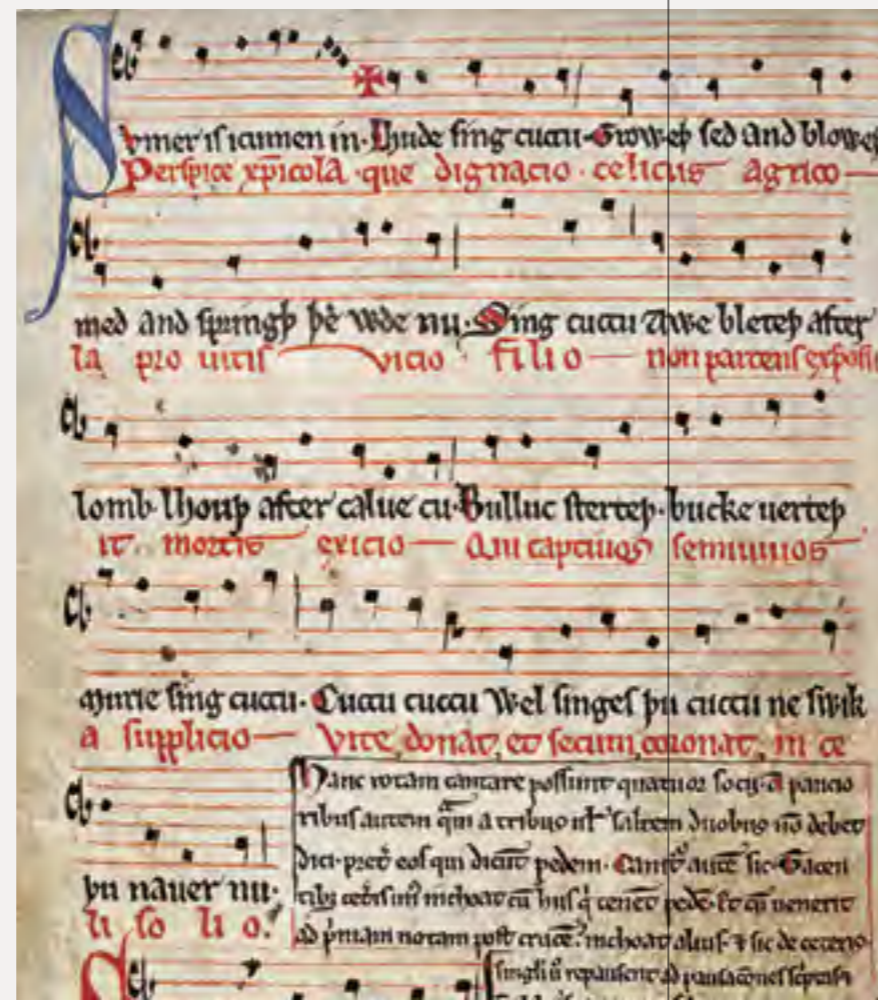 Svmer is icumen in. Lhude sing cuccu. Groweþ sed and bloweþ
Perspice xp̄icola . que dignacio . celicus agrico
med and springþ þe wde nu. Sing cuccu Awe bleteþ after
la pro uitis vicio filio non parcens exposu
lomb. lhouþ after calue cu. Bulluc sterteþ. bucke uerteþ
it mortis exicio Qui captiuos semiuiuos
murie sing cuccu. Cuccu cuccu Wel singes þu cuccu ne swik
a supplicio Vite donat, et secum coronat, in ce
Hanc rotam cantare possunt quatuor socij. A paucio
ribus autem q̄m a tribus ul' saltem duobus nō debet
dici. preter eos qui dicūt pedem. Canitur autē sic. Tacen
þu nauer nu.
li so li o.
tibȝ ceteris un' inchoat cū hijs q̇ tenēt pedē. Et cū uenerit
ad p̄mam notam post crucē. inchoat alius. ⁊ sic de ceteris.
singli u̇o repausent ad pausacōnes scriptas